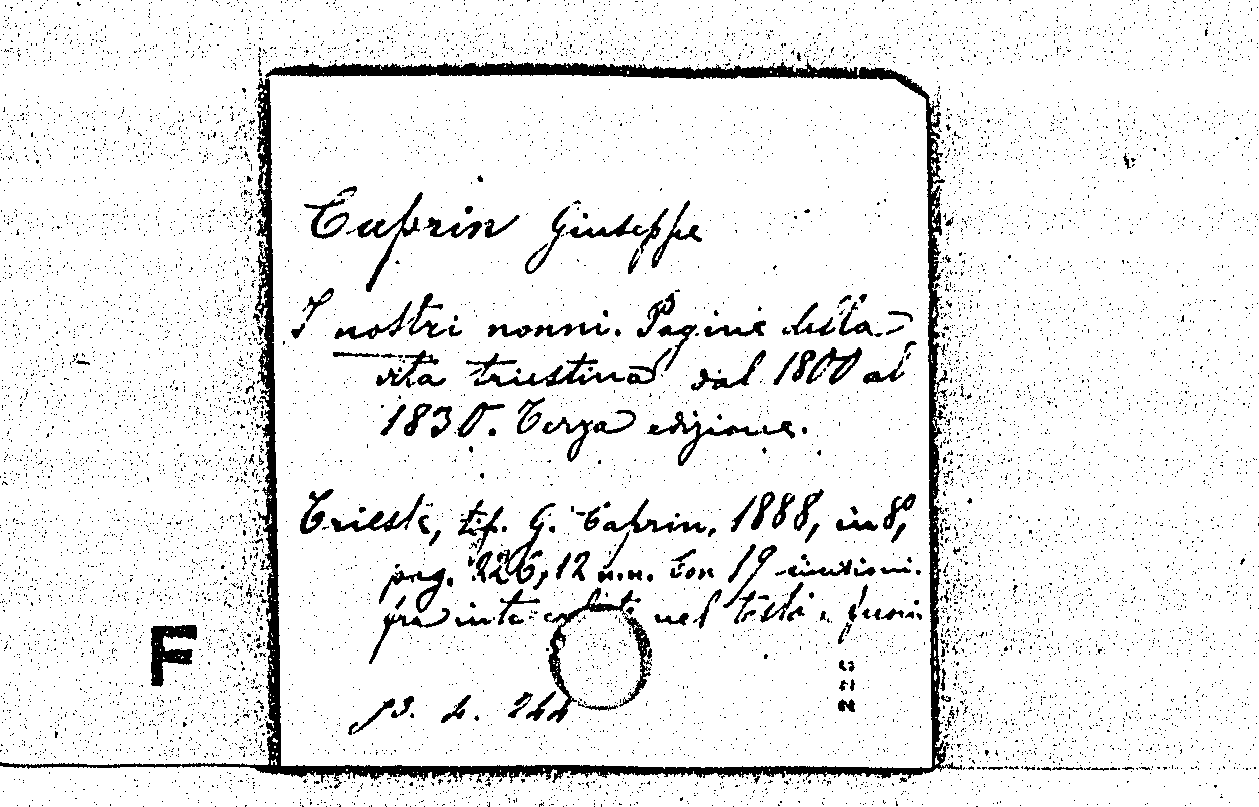 Caprin Giuseppe
I nostri nonni. Pagine della
vita triestina dal 1800 al
1830. Terza edizione.
Trieste, tip. G. Caprin, 1888, in 8°,
pag. 226, 12 n.n. Con 19 incisioni.
fra nel testo e fuori
F